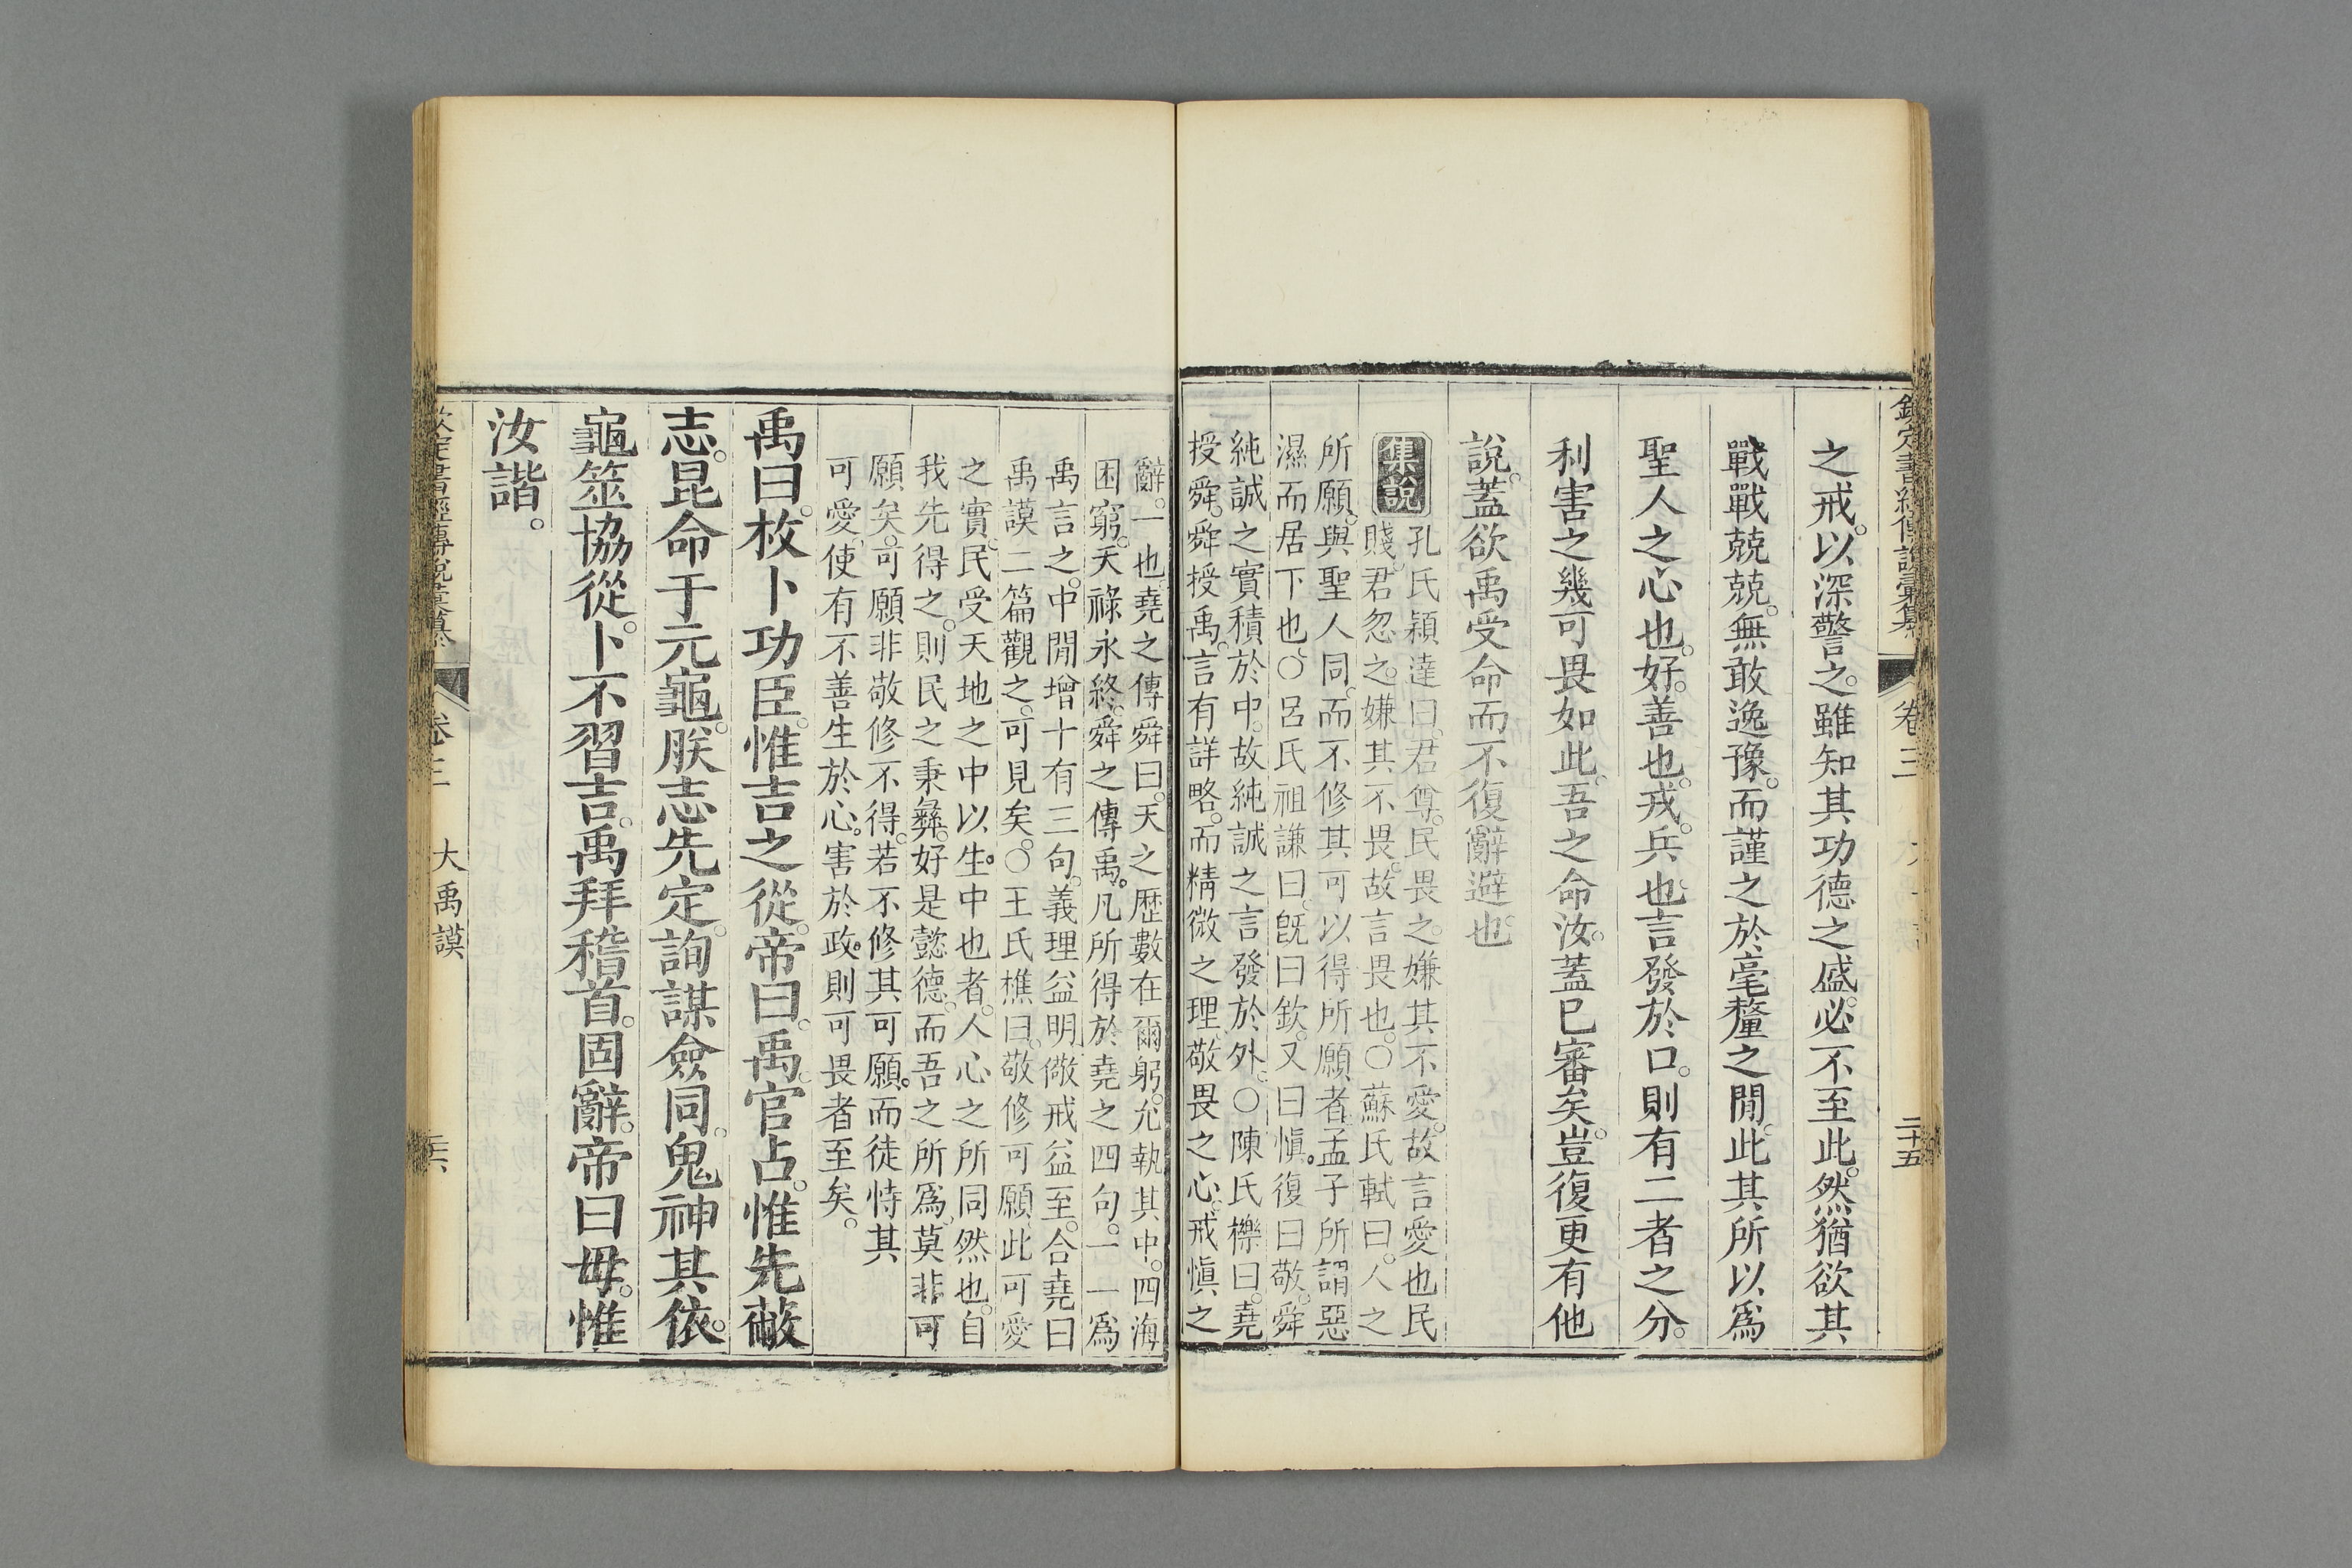 欽定書經傳說彙纂 卷三 二十五
之戒。以深警之。雖知其功德之盛。必不至此。然猶欲其
戰戰兢兢。無敢逸豫。而謹之於毫釐之閒。此其所以爲
聖人之心也。好。善也。戎。兵也。言發於口。則有二者之分。
利害之幾可畏如此。吾之命汝。蓋已審矣。豈復更有他
說。蓋欲禹受命而不復辭避也。
集說
孔氏穎達曰。君尊。民畏之。嫌其不愛。故言愛也。民
賤。君忽之。嫌其不畏。故言畏也。○蘇氏軾曰。人之
所願。與聖人同。而不修其可以得所願者。孟子所謂惡
濕而居下也。○呂氏祖謙曰。旣曰欽。又曰愼。復曰敬。舜
純誠之實積於中。故純誠之言發於外。○陳氏櫟曰。堯
授舜。舜授禹。言有詳略。而精微之理。敬畏之心。戒愼之
辭。一也。堯之傳舜曰。天之歷數在爾躬。允執其中。四海
困窮。天祿永終。舜之傳禹。凡所得於堯之四句。一一爲
禹言之。中閒增十有三句。義理益明。儆戒益至。合堯曰
禹謨二篇觀之。可見矣。○王氏樵曰。敬修可願。此可愛
之實。民受天地之中以生。中也者。人心之所同然也。自
我先得之。則民之秉彝。好是懿德。而吾之所爲。莫非可
願矣。可願非敬修不得。若不修其可願。而徒恃其
可愛。使有不善生於心。害於政。則可畏者至矣。
禹曰。枚卜功臣。惟吉之從。帝曰。禹。官占。惟先蔽
志。昆命于元龜。朕志先定。詢謀僉同。鬼神其依。
龜筮協從。卜不習吉。禹拜稽首。固辭。帝曰。毋。惟
汝諧。
欽定書經傳說彙纂 卷三 大禹謨 二十六